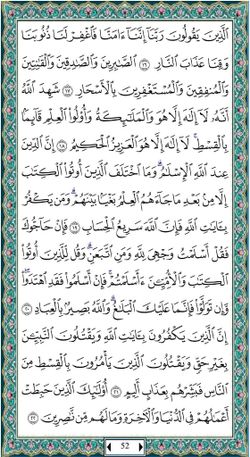 ٱلَّذِينَ يَقُولُونَ رَبَّنَآ إِنَّنَآ ءَامَنَّا فَٱغْفِرْ لَنَا ذُنُوبَنَا
وَقِنَا عَذَابَ ٱلنَّارِ ١٦ ٱلصَّٰبِرِينَ وَٱلصَّٰدِقِينَ وَٱلْقَٰنِتِينَ
وَٱلْمُنفِقِينَ وَٱلْمُسْتَغْفِرِينَ بِٱلْأَسْحَارِ ١٧ شَهِدَ ٱللَّهُ
أَنَّهُۥ لَآ إِلَٰهَ إِلَّا هُوَ وَٱلْمَلَٰٓئِكَةُ وَأُو۟لُوا۟ ٱلْعِلْمِ قَآئِمًۢا
بِٱلْقِسْطِ لَآ إِلَٰهَ إِلَّا هُوَ ٱلْعَزِيزُ ٱلْحَكِيمُ ١٨ إِنَّ ٱلدِّينَ
عِندَ ٱللَّهِ ٱلْإِسْلَٰمُ وَمَا ٱخْتَلَفَ ٱلَّذِينَ أُوتُوا۟ ٱلْكِتَٰبَ
إِلَّا مِنۢ بَعْدِ مَا جَآءَهُمُ ٱلْعِلْمُ بَغْيًۢا بَيْنَهُمْ وَمَن يَكْفُرْ
بِـَٔايَٰتِ ٱللَّهِ فَإِنَّ ٱللَّهَ سَرِيعُ ٱلْحِسَابِ ١٩ فَإِنْ حَآجُّوكَ
فَقُلْ أَسْلَمْتُ وَجْهِىَ لِلَّهِ وَمَنِ ٱتَّبَعَنِ وَقُل لِّلَّذِينَ أُوتُوا۟
ٱلْكِتَٰبَ وَٱلْأُمِّيِّـۧنَ ءَأَسْلَمْتُمْ فَإِنْ أَسْلَمُوا۟ فَقَدِ ٱهْتَدَوا۟
وَّإِن تَوَلَّوْا۟ فَإِنَّمَا عَلَيْكَ ٱلْبَلَٰغُ وَٱللَّهُ بَصِيرٌۢ بِٱلْعِبَادِ ٢٠
إِنَّ ٱلَّذِينَ يَكْفُرُونَ بِـَٔايَٰتِ ٱللَّهِ وَيَقْتُلُونَ ٱلنَّبِيِّـۧنَ
بِغَيْرِ حَقٍّ وَيَقْتُلُونَ ٱلَّذِينَ يَأْمُرُونَ بِٱلْقِسْطِ مِنَ
ٱلنَّاسِ فَبَشِّرْهُم بِعَذَابٍ أَلِيمٍ ٢١ أُو۟لَٰٓئِكَ ٱلَّذِينَ حَبِطَتْ
أَعْمَٰلُهُمْ فِى ٱلدُّنْيَا وَٱلْـَٔاخِرَةِ وَمَا لَهُم مِّن نَّٰصِرِينَ ٢٢
52